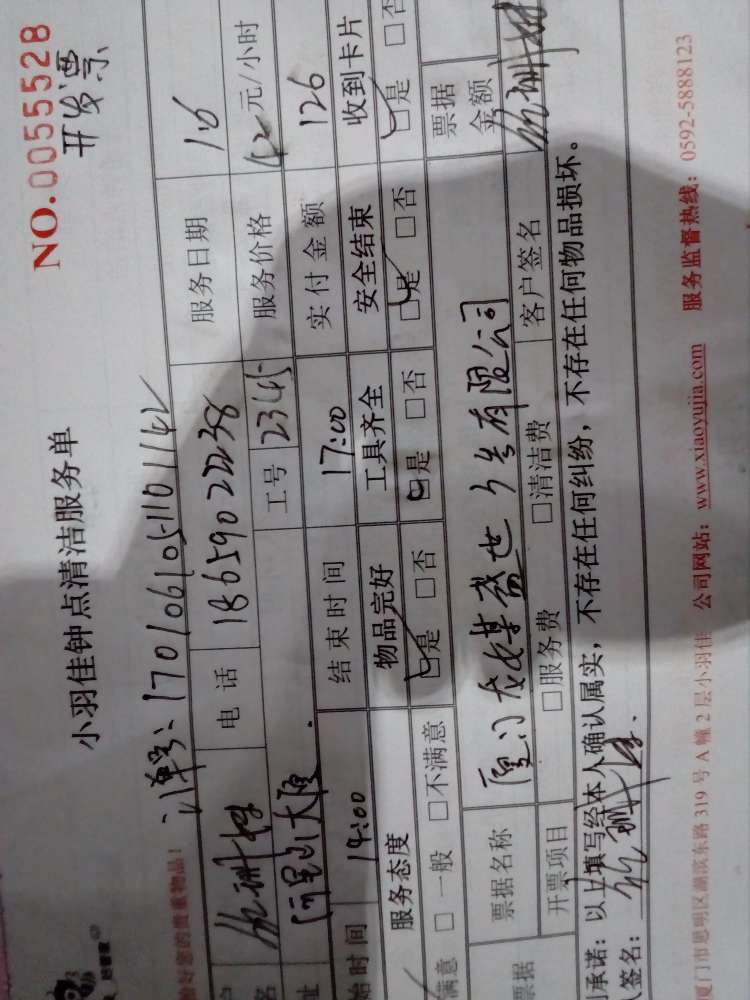 NO.0055528
开发票
小羽佳钟点清洁服务单
订单号:1701061051101142
好您的贵重物品!
名 电话 18659022238 服务日期 1.6
址 大厦 工号 2345 服务价格 42元/小时
始时间 14:00 结束时间 17:00 实付金额 126
服务态度 物品完好 工具齐全 安全结束 收到卡片
满意 □ 一般 □不满意 □是 □否 □是 □否 □是 □否 □是 □否
票据 票据名称 厦门龙媒盛世 有限公司 票据金额
开票项目 □服务费 □清洁费 客户签名
承诺:以上填写经本人确认属实,不存在任何纠纷,不存在任何物品损坏。
签名:
厦门市思明区湖滨东路 319 号 A 幢 2 层小羽佳 公司网站:www.xiaoyujia.com 服务监督热线:0592-5888123